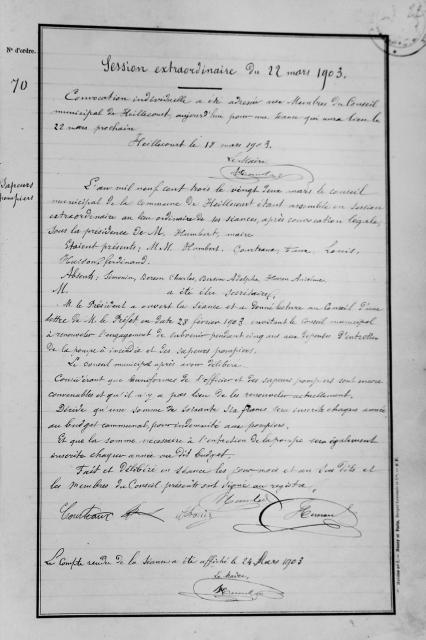 N° d'ordre.
70
Session extraordinaire du 22 mars 1903.
Convocation individuelle a été adressée aux Membres du Conseil
municipal de Heillecourt, aujourd'hui pour une séance qui aura lieu le
22 mars prochain
Heillecourt le 18 mars 1903.
Le Maire
Sapeurs
pompiers
L'an mil neuf cent trois le vingt deux mars le conseil
municipal de la commune de Heillecourt étant assemblé en session
extraordinaire au lieu ordinaire de ses séances, après convocation légale,
sous la présidence de M. Humbert, maire
Etaient présents, M.M. Humbert, Louis,
Ferdinand.
Absents, Simonin, Charles, Adolphe,
M. a été élu secrétaire.
M. le Président a ouvert la séance et a donné lecture au Conseil d'une
lettre de M. le Préfet en date 28 février 1903 invitant le conseil municipal
à renouveler l'engagement de subvenir pendant cinq ans aux dépenses d'entretien
de la pompe à incendie et des sapeurs pompiers.
Le conseil municipal après avoir délibéré
Considérant que l'uniforme de l'officier et des sapeurs pompiers sont encore
convenables et qu'il n'y a pas lieu de les renouveler actuellement.
Décide qu'une somme de soixante six francs sera inscrite chaque année
au budget communal pour indemnité aux pompiers.
Et que la somme nécessaire à l'entretien de la pompe sera également
inscrite chaque année au dit budget.
Fait et délibéré en séance les jour mois et an sus dits et
les Membres du Conseil présents ont signé au registre.
Le Compte rendu de la séance a été affiché le 24 Mars 1903
Le Maire,